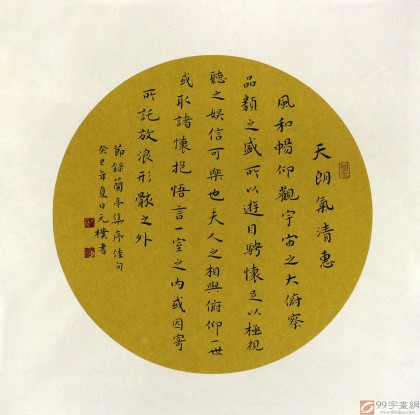 天朗氣清惠
風和暢仰觀宇宙之大俯察
品類之盛所以遊目騁懷足以極視
聽之娛信可樂也夫人之相與俯仰一世
或取諸懷抱悟言一室之內或因寄
所託放浪形骸之外
節録蘭亭集序佳句
癸巳年夏日元樸書
99字畫網